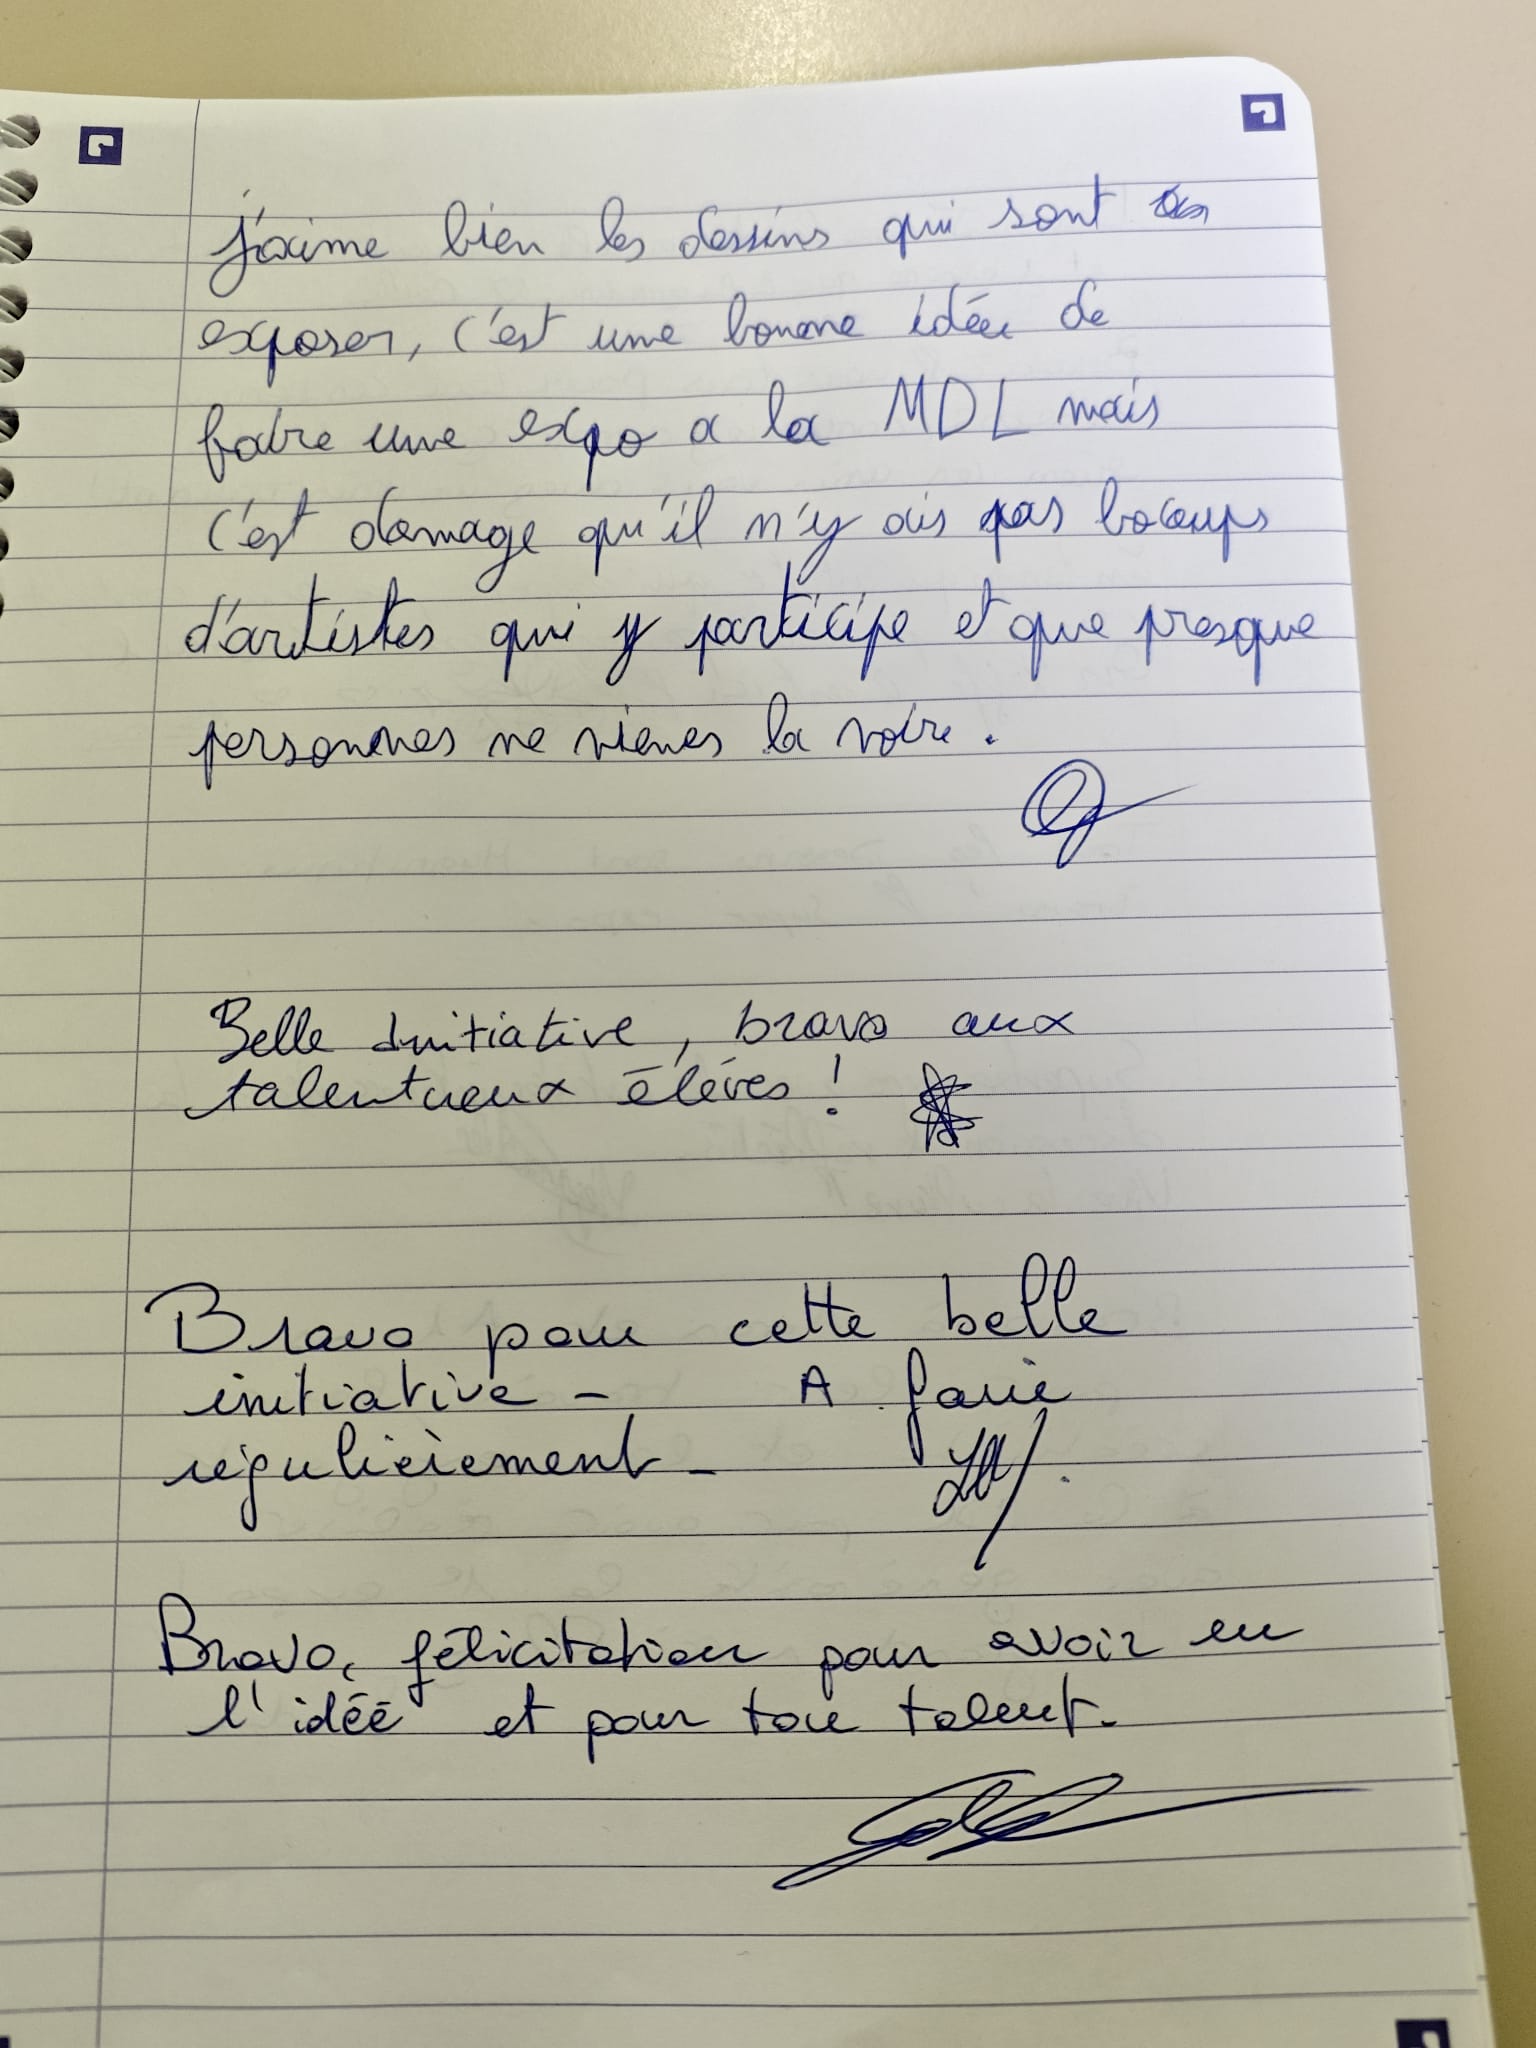 j'aime bien les dessins qui sont
exposer, c'est une bonne idée de
faire une expo a la MDL mais
c'est domage qu'il n'y ais pas bocoups
d'artistes qui y participe et que presque
personnes ne vienes la voire.
Belle initiative, bravo aux
talentueux élèves !
Bravo pour cette belle
initiative - A faire
régulièrement -
Bravo, félicitation pour avoir eu
l'idéé et pour ton talent.